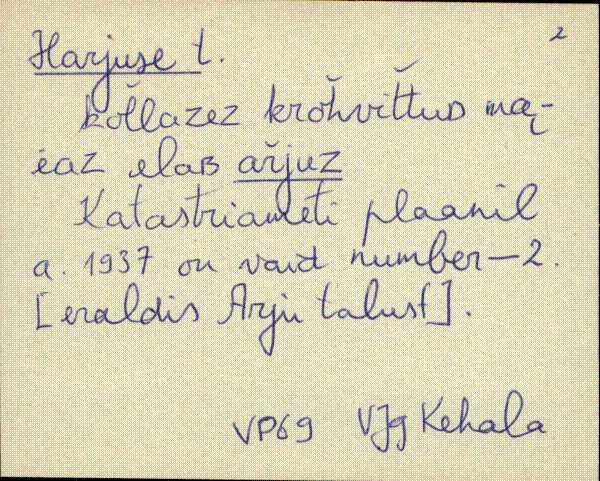 2
Harjuse t.
kol̆lazez krŏhvit̆tus mą-
jaz elaʙ ar̆juz
Katastriameti plaanil
a. 1937 on vaid number—2.
[eraldis Arju talust].
VP69 VJg Kehala